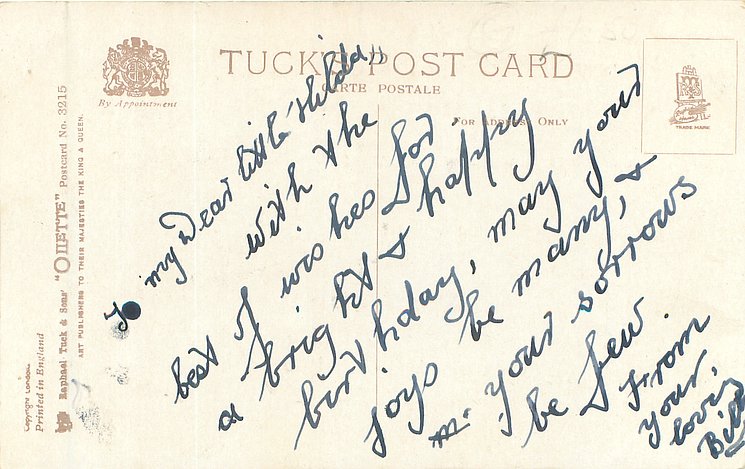 TUCK'S POST CARD
CARTE POSTALE
By Appointment
FOR ADDRESS ONLY
TRADE MARK
Copyright London
Printed in England
Raphael Tuck & Sons' "OILETTE" Postcard No. 3215
ART PUBLISHERS TO THEIR MAJESTIES THE KING & QUEEN.
To my Dear little
with the
best of wishes for
a bright & happy
birthday, may your
joys be many, &
your sorrows
be few.
From
Your
lovin
Bill